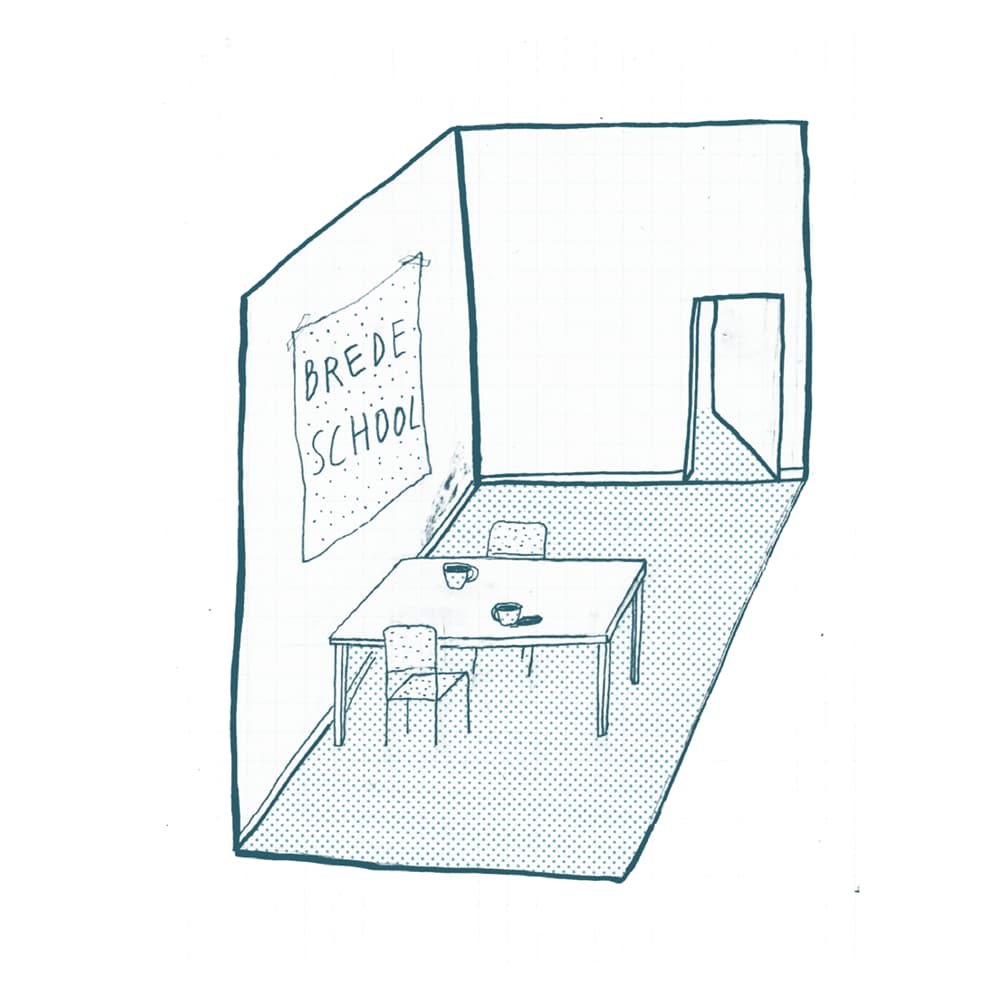 BREDE
SCHOOL